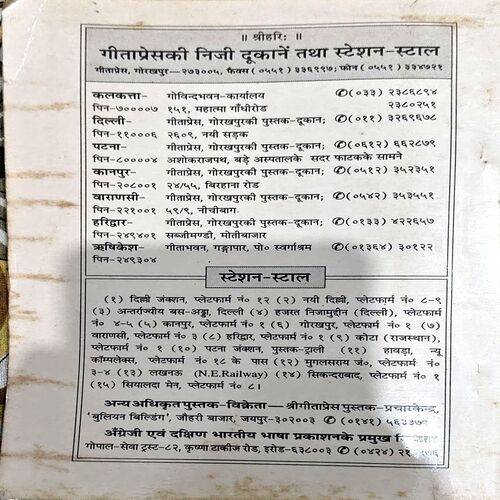 ॥ श्रीहरि: ॥
गीताप्रेसकी निजी दूकानें तथा स्टेशन-स्टाल
गीताप्रेस, गोरखपुर—२७३००५, फैक्स (०५५१) ३३६९९७; फोन (०५५१) ३३४७२१
कलकत्ता- गोविन्दभवन-कार्यालय ✆(०३३) २३८६८९४
पिन-७००००७ १५१, महात्मा गाँधीरोड २३८०२५१
दिल्ली- गीताप्रेस, गोरखपुरकी पुस्तक-दूकान; ✆(०११) ३२६९६७८
पिन-११०००६ २६०९, नयी सड़क
पटना- गीताप्रेस, गोरखपुरकी पुस्तक-दूकान; ✆(०६१२) ६६२८७९
पिन-८००००४ अशोकराजपथ, बड़े अस्पतालके सदर फाटकके सामने
कानपुर- गीताप्रेस, गोरखपुरकी पुस्तक-दूकान; ✆(०५१२) ३५२३५१
पिन-२०८००१ २४/५५, बिरहाना रोड
वाराणसी- गीताप्रेस, गोरखपुरकी पुस्तक-दूकान; ✆(०५४२) ३५३५५१
पिन-२२१००१ ५९/९, नीचीबाग
हरिद्वार- गीताप्रेस, गोरखपुरकी पुस्तक-दूकान; ✆(०१३३) ४२२६५७
पिन-२४९४०१ सब्जीमण्डी, मोतीबाजार
ऋषिकेश- गीताभवन, गङ्गापार, पो० स्वर्गाश्रम ✆(०१३६४) ३०१२२
पिन-२४९३०४
स्टेशन-स्टाल
(१) दिल्ली जंक्शन, प्लेटफार्म नं० १२ (२) नयी दिल्ली, प्लेटफार्म नं० ८-९
(३) अन्तर्राज्यीय बस-अड्डा, दिल्ली (४) हजरत निजामुद्दीन (दिल्ली), प्लेटफार्म
नं० ४-५ (५) कानपुर, प्लेटफार्म नं० १ (६) गोरखपुर, प्लेटफार्म नं० १ (७)
वाराणसी, प्लेटफार्म नं० ३ (८) हरिद्वार, प्लेटफार्म नं० १ (९) कोटा (राजस्थान),
प्लेटफार्म नं० १ (१०) पटना जंक्शन, पुस्तक-ट्राली (११) हावड़ा, न्यू
कॉम्पलेक्स, प्लेटफार्म नं० १८ के पास (१२) मुगलसराय जं०, प्लेटफार्म नं०
३-४ (१३) लखनऊ (N.E.Railway) (१४) सिकन्दराबाद, प्लेटफार्म नं० १
(१५) सियालदा मेन, प्लेटफार्म नं० ८।
अन्य अधिकृत पुस्तक-विक्रेता— श्रीगीताप्रेस पुस्तक-प्रचारकेन्द्र,
'बुलियन बिल्डिंग', जौहरी बाजार, जयपुर-३०२००३ ✆(०१४१)
अँग्रेजी एवं दक्षिण भारतीय भाषा प्रकाशनके प्रमुख
गोपाल-सेवा ट्रस्ट-८२, कृष्णा टाकीज रोड, इरोड-६३८००३ ✆(०४२४)